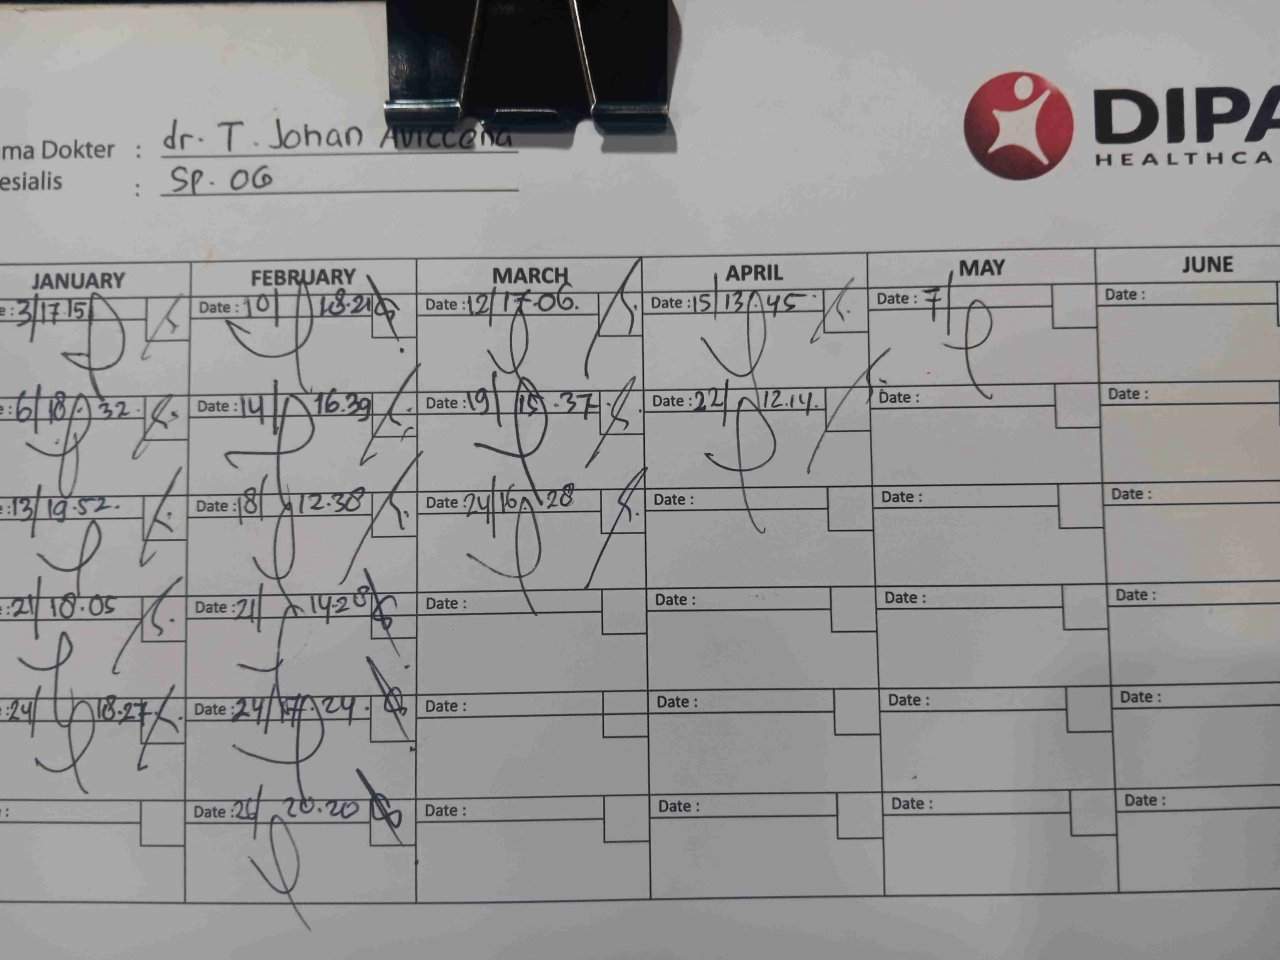 dr. T. Johan Aviccena
ma Dokter :
esialis : Sp. OG
DIPA
HEALTHCA
JANUARY FEBRUARY MARCH APRIL MAY JUNE
e : 3/17.15 Date : 10/ 18.21 Date : 12/17.06. Date : 15/13.45 Date : 7/ Date :
e : 6/18.32. Date : 14/ 16.39 Date : 19/15.37 Date : 22/12.14. Date : Date :
e : 13/19.52. Date : 18/ 12.38 Date : 24/16.28 Date : Date : Date :
e : 21/18.05 Date : 21/ 14.28 Date : Date : Date : Date :
e : 24/ 18.27 Date : 24/17.24. Date : Date : Date : Date :
: Date : 26/ 20.20 Date : Date : Date : Date :